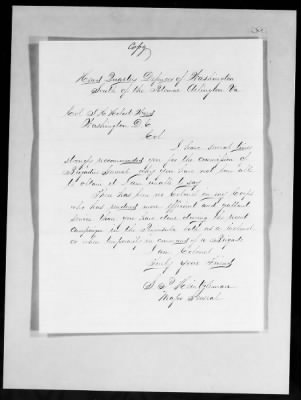 Copy
Head Quarters Defences of Washington
South of the Potomac Arlington Va
Col J. H. Hobart Ward
Washington D.C.
Col.
I have several times
strongly recommended you for the commission of
Brigadier General. Why you have not been able
to obtain it I am unable to say.
There has been no Colonel in my Corps
who has rendered more efficient and gallant
service than you have done during the recent
campaign in the Peninsula both as a Colonel
or when temporarily in command of a Brigade
I am Colonel
Truly your Friend
S. P. Heintzelman
Major General